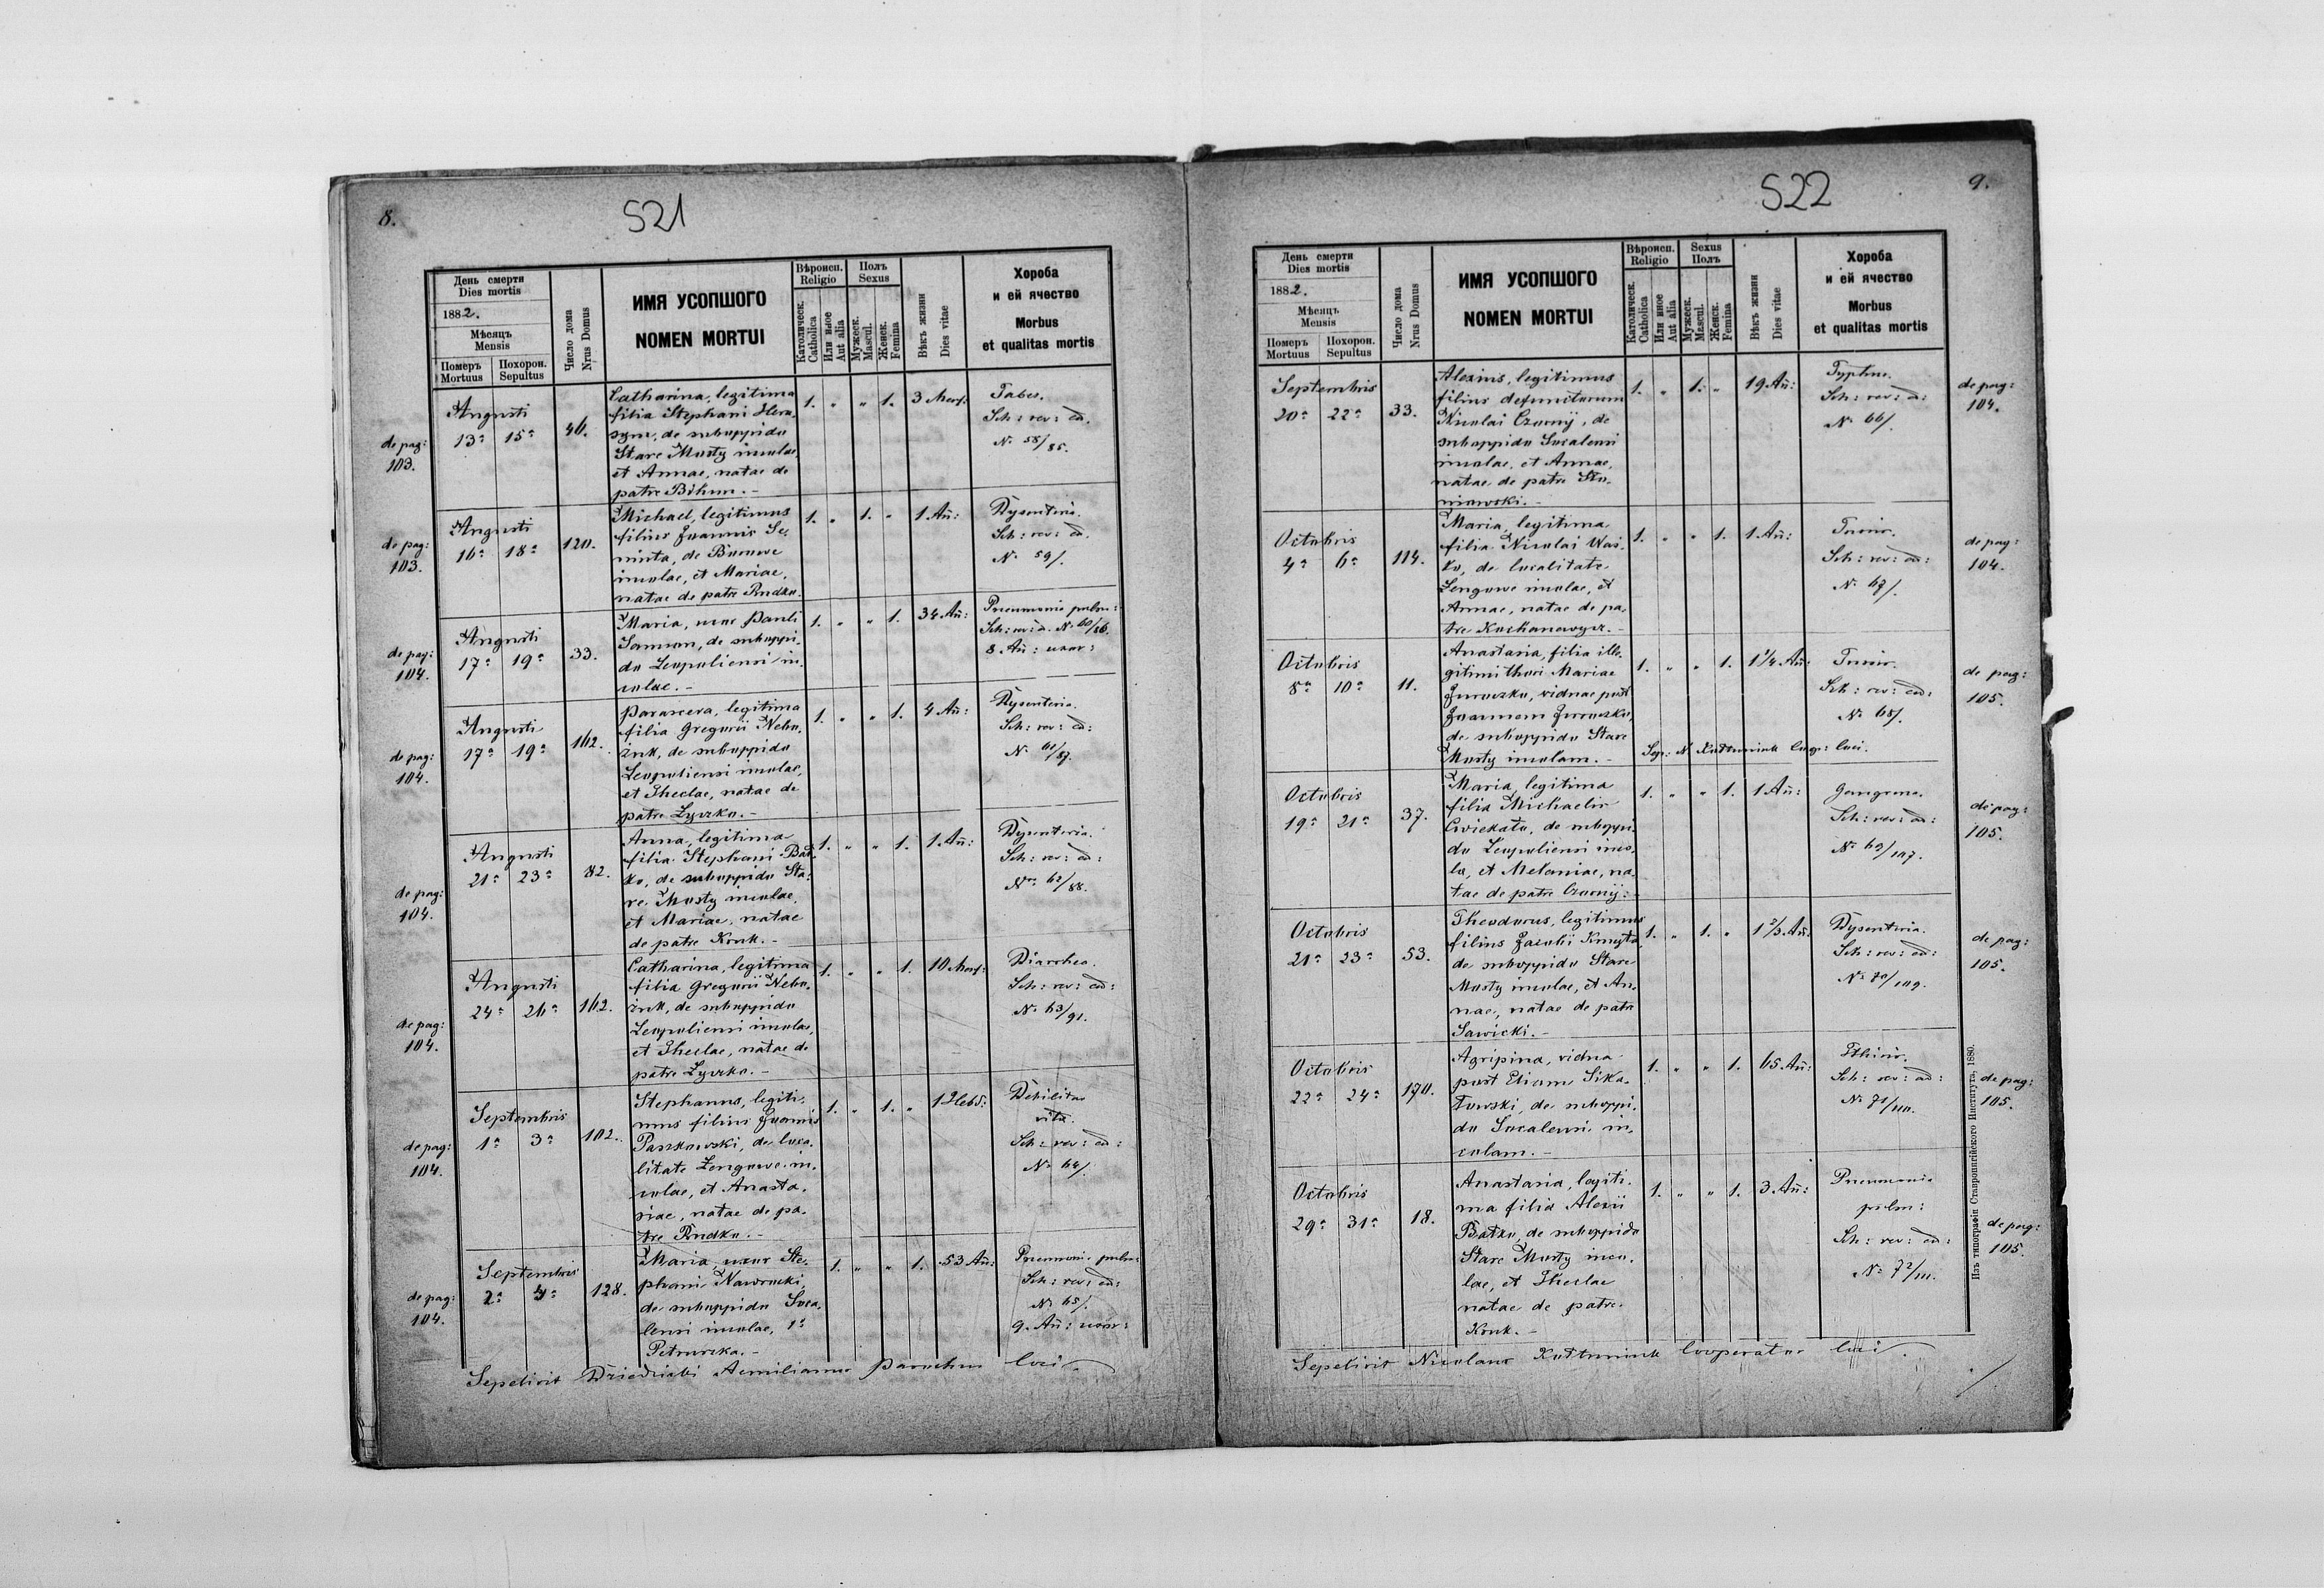 8.
521
День смерти
Dies mortis
1882.
Мѣсяцъ
Mensis
Померъ
Mortuus
Похорон.
Sepultus
Число дома
Nrus Domus
ИМЯ УСОПШОГО
NOMEN MORTUI
Вѣроисп.
Religio
Католическ.
Catholica
Или иное
Aut alia
Полъ
Sexus
Мужеск.
Mascul.
Женск.
Femina
Вѣкъ жизни
Dies vitae
Хороба
и ей ячество
Morbus
et qualitas mortis
de pag: 103.
Augusti
13a 15a 46.
Catharina, legitima
filia Stephani Hera-
sym, de suboppido
Stare Mosty incolae,
et Annae, natae de
patre Bihun.-
1. " " 1. 3 Mens:
Tabes.
Sch: rev: ad.
No 58/85.
de pag: 103.
Augusti
16a 18a 120.
Michael, legitimus
filius Joannis Se-
, de
incolae, et Mariae,
natae de patre Rudko.
1. " 1. " 1. An̄:
Dysenteria.
Sch: rev: ad.
No 59/.
de pag: 104.
Augusti
17a 19a 33.
Maria, uxor Pauli
Samson, de suboppi-
do Leopoliensi in-
colae.-
1. " " 1. 34 An̄:
Pneumonia pulm:
Sch: rev: a. No 60/86.
8 An̄: uxor:
de pag: 104.
Augusti
17a 19a 162.
Parasceva, legitima
filia Gregorii Nebo-
żuk, de suboppido
Leopoliensi incolae,
et Theclae, natae de
patre Łyszko.-
1. " " 1. 4 An̄:
Dysenteria.
Sch: rev: ad:
No 61/87.
de pag: 104.
Augusti
21a 23a 82.
Anna, legitima
filia Stephani Bat-
ko, de suboppido Sta-
re Mosty incolae,
et Mariae, natae
de patre Kruk.-
1. " " 1. 1 An̄:
Dysenteria.
Sch: rev: ad:
Nro 62/88.
de pag: 104.
Augusti
24a 26a 162.
Catharina, legitima
filia Gregorii Nebo-
żuk, de suboppido
Leopoliensi incolae,
et Theclae, natae de
patre Łyszko.-
1. " " 1. 10 Mens:
Diarrhea.
Sch: rev: ad:
No 63/91.
de pag: 104.
Septembris
1a 3a 102.
Stephanus, legiti-
mus filius Joannis
Paszkowski, de loca-
litate Zengowe in-
colae, et Anasta-
siae, natae de pa-
tre Rudko.-
1. " 1. " 12 Hebd:
Debilitas
vitae.
Sch: rev: ad:
No 64/.
de pag: 104.
Septembris
2a 4a 128.
Maria, uxor Ste-
phani Nawrocki,
de suboppido Soca-
lensi incolae,
1. " " 1. 53 An̄:
Pneumonia pulm:
Sch: rev: ad:
No 65/.
9. An̄: uxor:
Sepelivit Dziedzicki Aemilianus Parochus loci.
522
9.
День смерти
Dies mortis
1882.
Мѣсяцъ
Mensis
Померъ
Mortuus
Похорон.
Sepultus
Число дома
Nrus Domus
ИМЯ УСОПШОГО
NOMEN MORTUI
Вѣроисп.
Religio
Католическ.
Catholica
Или иное
Aut alia
Sexus
Полъ
Мужеск.
Mascul.
Женск.
Femina
Вѣкъ жизни
Dies vitae
Хороба
и ей ячество
Morbus
et qualitas mortis
Septembris
20a 22a 33.
Alexius, legitimus
filius defunctorum
Nicolai Czornij, de
suboppido Socalensi
incolae, et Annae,
natae de patre Sta-
niewski.-
1. " 1. " 19 An̄:
Typhus.
Sch: rev: a:
No 66/.
de pag: 104.
Octobris
4a 6a 114.
Maria, legitima
filia Nicolai Waś-
ko, de localitate
Zengowe incolae, et
Annae, natae de pa-
tre Kochanowycz.-
1. " " 1. 1 An̄:
Tussis.
Sch: rev: ad:
No 67/.
de pag: 104.
Octobris
8a 10a 11.
Anastasia, filia ille-
gitimi thori Mariae
Juroczko, viduae post
Joannem Juroczko,
de suboppido Stare
Mosty incolam.-
1. " " 1. 1 1/4 An̄:
Tussis.
Sch: rev: ad:
No 68/.
Sep: N Kułtuniuk Coop: loci.
de pag: 105.
Octobris
19a 21a 37.
Maria, legitima
filia Michaelis
Cwiekało, de suboppi-
do Leopoliensi inco-
lae, et Melaniae, na-
tae de patre Czornij.-
1. " " 1. 1 An̄:
Gangrena.
Sch: rev: ad:
No 69/107.
de pag: 105.
Octobris
21a 23a 53.
Theodorus, legitimus
filius Jacobi Kmyta,
de suboppido Stare
Mosty incolae, et An-
nae, natae de patre
Sawicki.-
1. " 1. " 1 2/3 An̄:
Dysenteria.
Sch: rev: ad:
No 70/109.
de pag: 105.
Octobris
22a 24a 170.
Agripina, vidua
post Eliam Sika-
łowski, de suboppi-
do Socalensi in-
colam.-
1. " " 1. 65 An̄:
Pthisis.
Sch: rev: ad:
No 71/110.
de pag: 105.
Octobris
29a 31a 18.
Anastasia, legiti-
ma filia Alexii
Batko, de suboppido
Stare Mosty inco-
lae, et Theclae
natae de patre
Kruk.-
1. " " 1. 3 An̄:
Pneumonia
pulm:
Sch: rev: ad:
No 72/111.
de pag: 105.
Sepelivit Nicolaus Kułtuniuk Cooperator loci.
Изъ типографіи Ставропигійского Института, 1880.